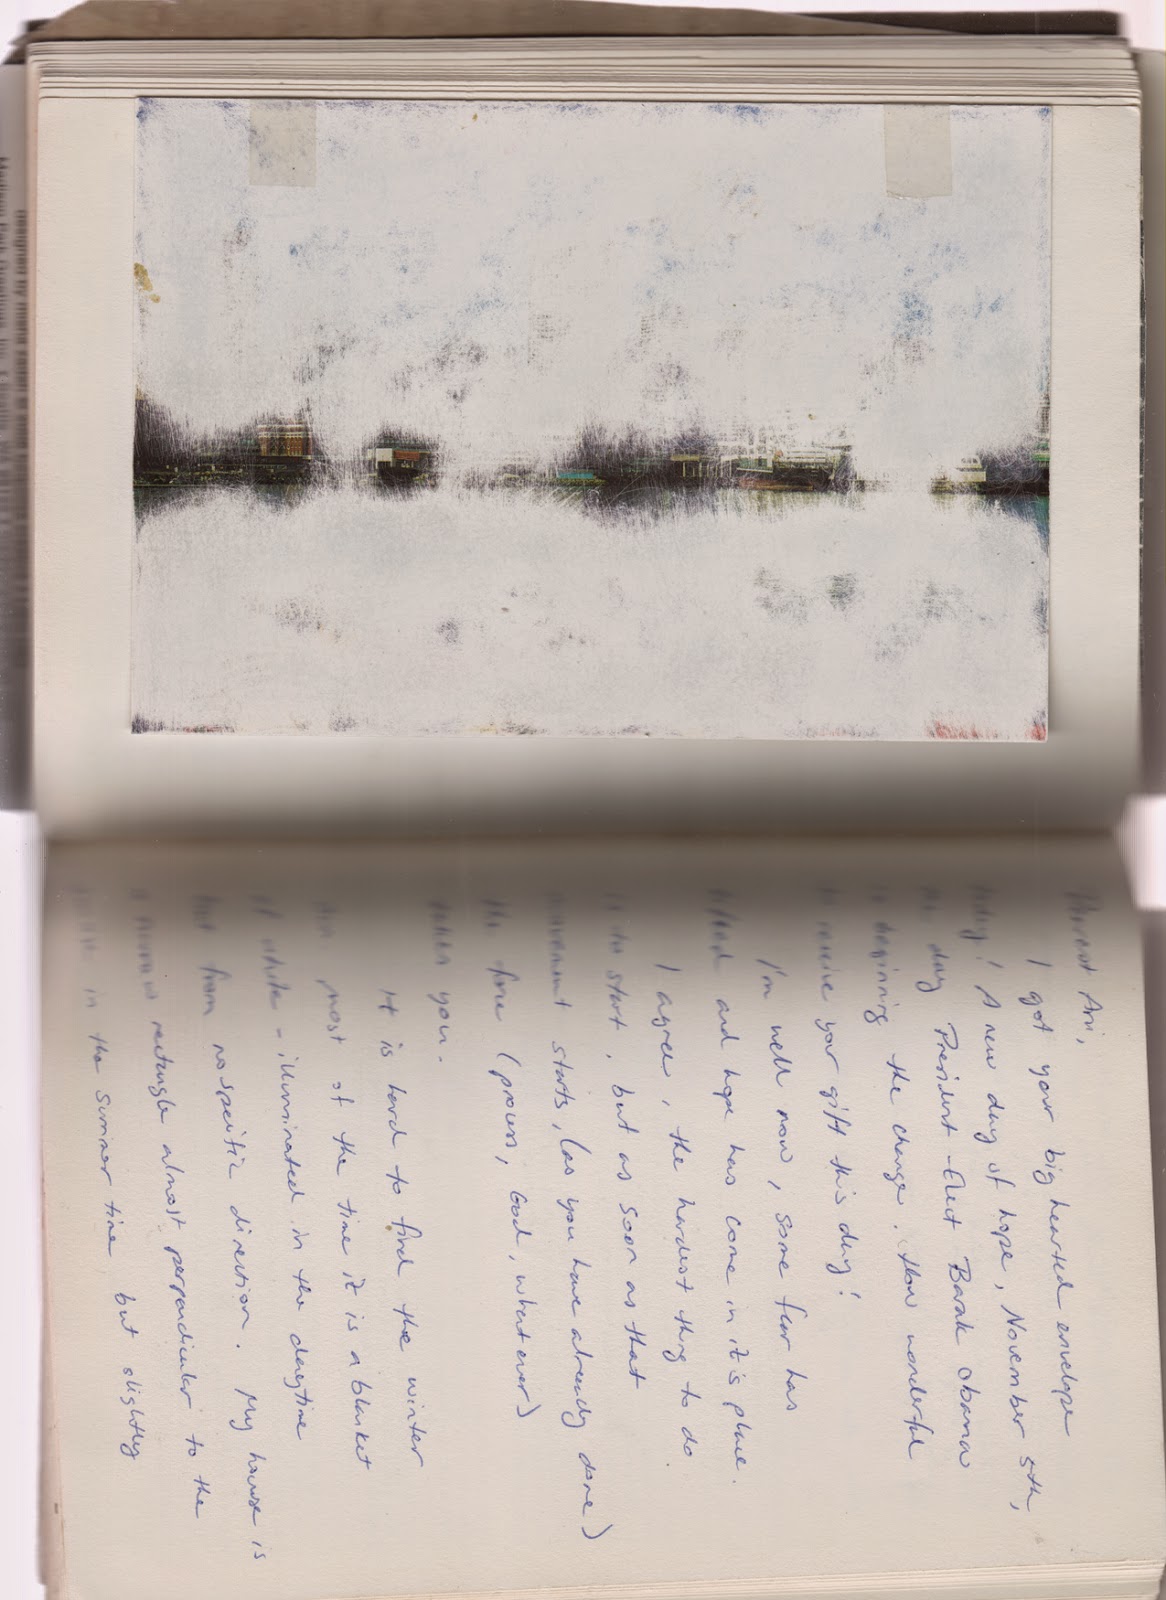 Dearest Ari,
I got your big hearted envelope
today! A new day of hope, November 5th,
the day President-Elect Barak Obama
is beginning the change. How wonderful
to receive your gift this day!
I'm well now, some fear has
lifted and hope has come in it's place.
I agree, the hardest thing to do
is to start, but as soon as that
movement starts, (as you have already done)
the force (process, God, whatever)
takes you.
It is hard to find the winter
sun most of the time it is a blanket
of white - illuminated in the daytime
but from no specific direction. My house is
a narrow rectangle almost perpendicular to the
in the summer time but slightly